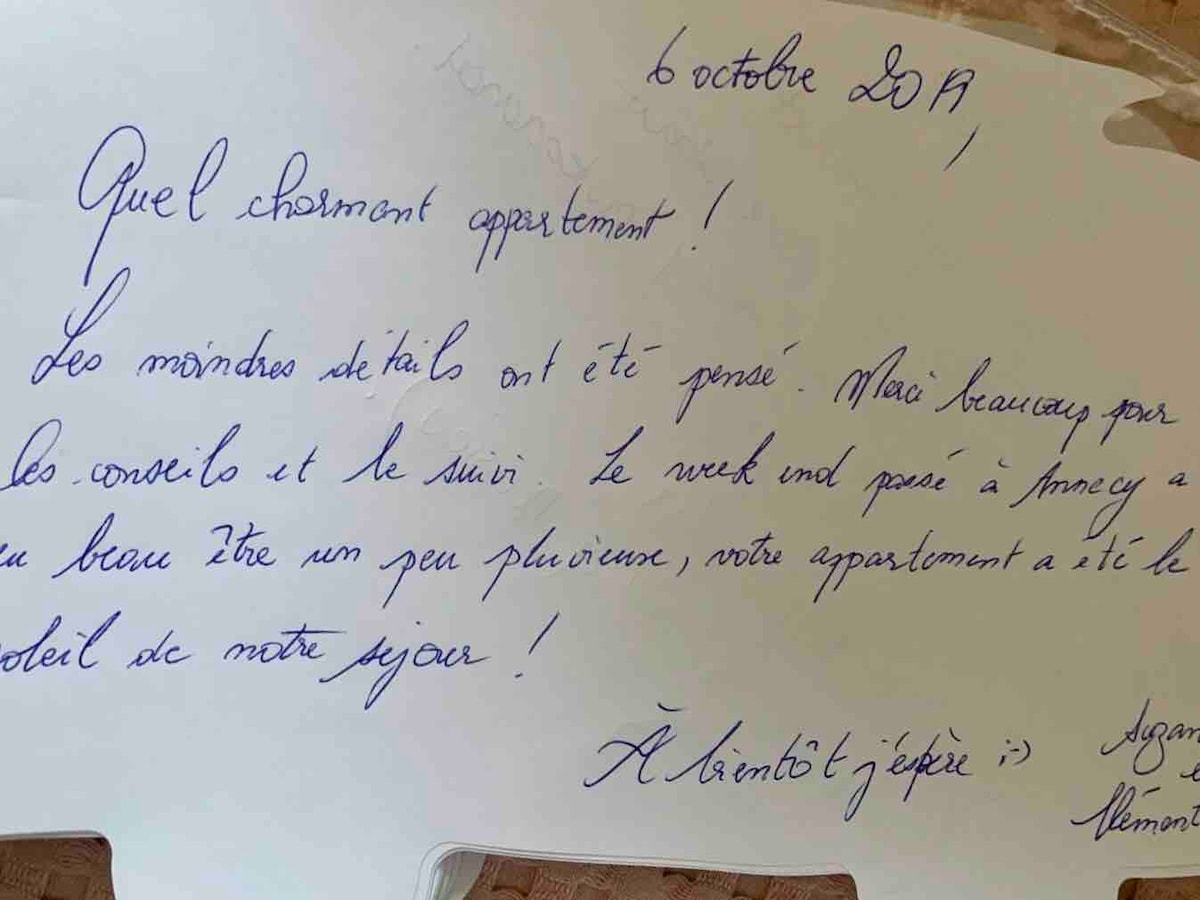 6 octobre 2019,
Quel charmant appartement !
Les moindres détails ont été pensé. Merci beaucoup pour
les conseils et le suivi. Le week end passé à Annecy a
eu beau être un peu pluvieuse, votre appartement a été le
soleil de notre séjour !
À bientôt j'éspère ;-)
Suzan
e
Clément